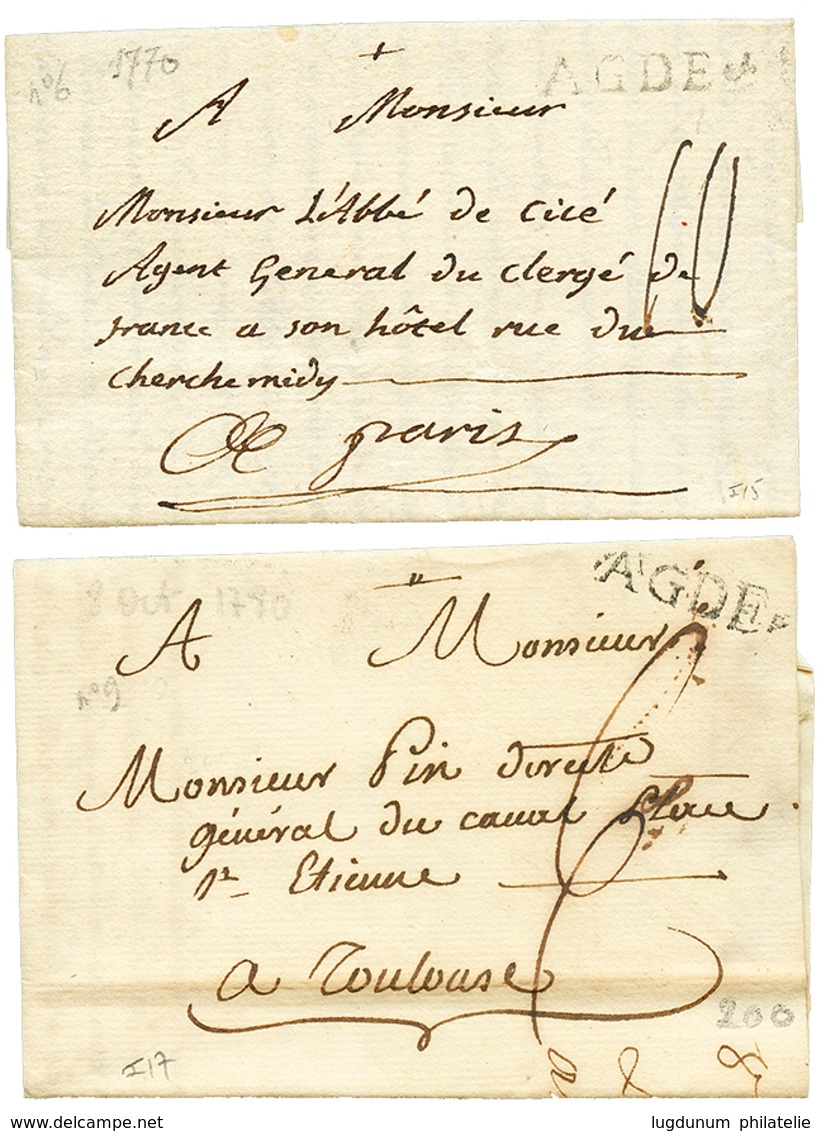 n°6 1770
AGDE
A Monsieur
Monsieur L'Abbé de Cicé
Agent General du Clergé de
france a son hôtel rue du
Cherchemidy
A paris
I15
8 Oct 1780
AGDE
A Monsieur
n°9
Monsieur Pin directe
général du canal place
St Etienne
a Toulouse
200
I17
www.delcampe.net
lugdunum philatelie